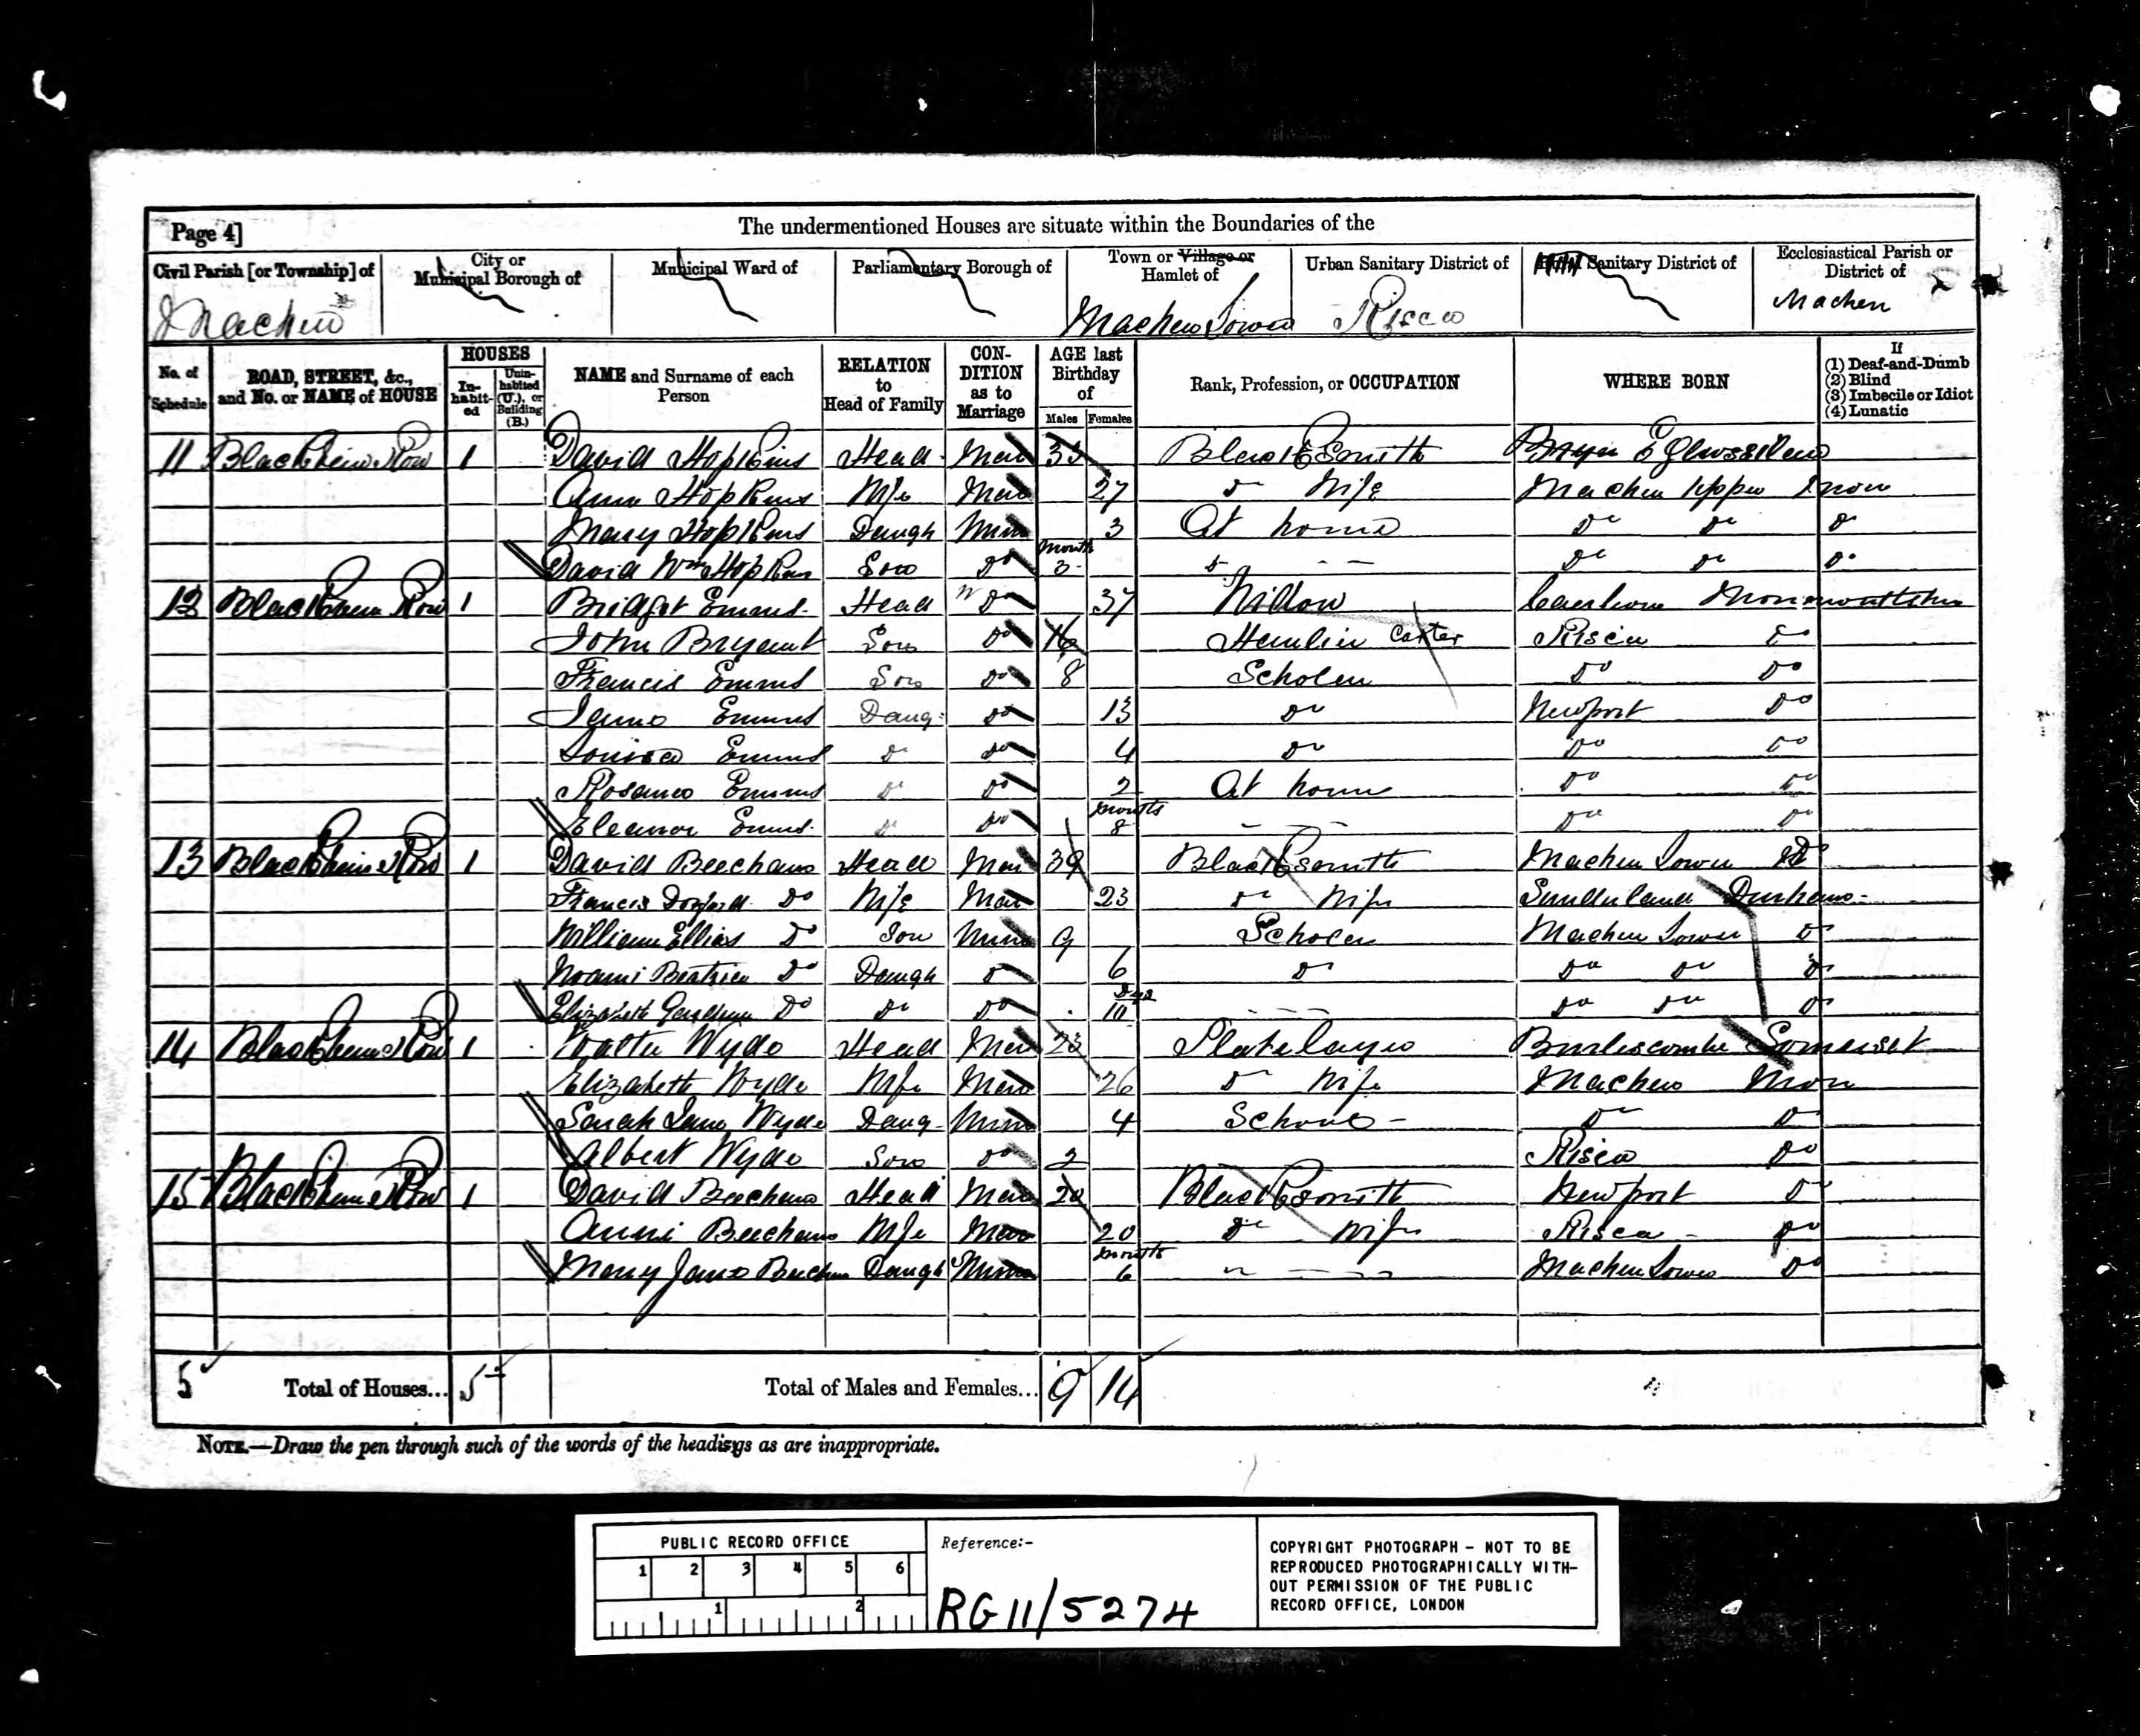 Page 4]
The undermentioned Houses are situate within the Boundaries of the
Civil Parish [or Township] of
City or Municipal Borough of
Municipal Ward of
Parliamentary Borough of
Town or Village or Hamlet of
Urban Sanitary District of
Sanitary District of
Ecclesiastical Parish or District of
Machen
Machen Lower
Risca
Machen
No. of Schedule
ROAD, STREET, &c., and No. or NAME of HOUSE
HOUSES
In-habit-ed
Unin-habited (U.), or Building (B.)
NAME and Surname of each Person
RELATION to Head of Family
CON-DITION as to Marriage
AGE last Birthday of
Males
Females
Rank, Profession, or OCCUPATION
WHERE BORN
If
(1) Deaf-and-Dumb
(2) Blind
(3) Imbecile or Idiot
(4) Lunatic
11 1 David Hopkins Head Mar Blacksmith
Ann Hopkins Wife Mar 27 Do Wife Machen Upper Mon
Mary Hopkins Daugh 3 At home Do Do Do
David Wm Hopkins Son Do 3 months Do Do Do
12 1 Bridget Head 37 Widow Monmouthshire
John Bryant Son Do 16 Carter Risca Do
Francis Emms Son Do 8 Scholar Do Do
Emms Daug Do 13 Do Newport Do
Louisa Emms Do Do 4 Do Do Do
Emms Do Do 2 At home Do Do
Eleanor Do Do 8 months Do Do
13 1 David Beecham Head Mar 39 Blacksmith Machen Lower Do
Francis Do Wife Mar 23 Do Wife Sunderland Durham
William Do Son 9 Scholar Machen Lower Do
Beatrice Do Daugh Do 6 Do Do Do Do
Elizabeth Do Do Do 10 Days Do Do Do
14 1 Walter Wyde Head Mar 23 Platelayer Burlescombe Somerset
Elizabeth Wyde Wife Mar 26 Do Wife Machen Mon
Sarah Jane Wyde Daug 4 Do Do
Albert Wyde Son Do 2 Risca Do
15 1 David Beecham Head Mar 20 Blacksmith Newport Do
Beecham Wife Mar 20 Do Wife Risca Do
Mary Jane Beecham Daugh 6 months Machen Lower Do
5 Total of Houses... 5
Total of Males and Females... 9 14
NOTE.—Draw the pen through such of the words of the headings as are inappropriate.
PUBLIC RECORD OFFICE
1 2 3 4 5 6
1 2
Reference:-
RG 11/5274
COPYRIGHT PHOTOGRAPH - NOT TO BE
REPRODUCED PHOTOGRAPHICALLY WITH-
OUT PERMISSION OF THE PUBLIC
RECORD OFFICE, LONDON